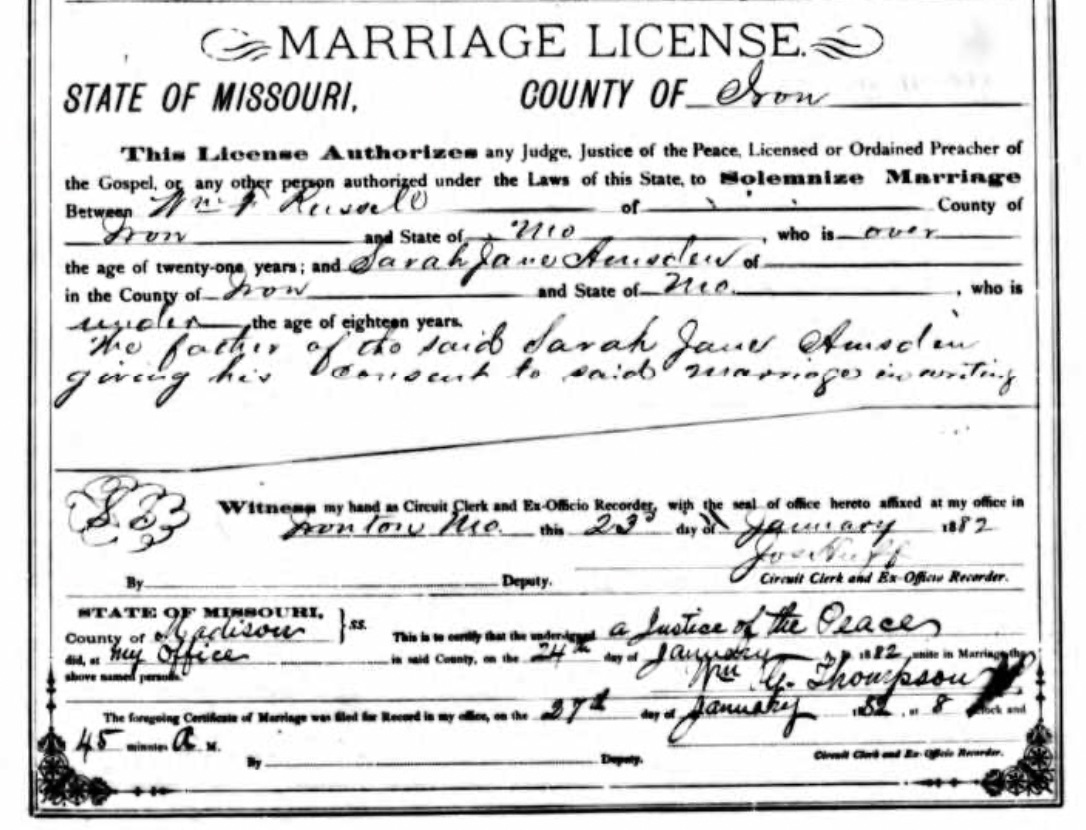 MARRIAGE LICENSE.
STATE OF MISSOURI, COUNTY OF Iron
This License Authorizes any Judge, Justice of the Peace, Licensed or Ordained Preacher of
the Gospel, or any other person authorized under the Laws of this State, to Solemnize Marriage
Between Wm F Russell of County of
Iron and State of Mo, who is over
the age of twenty-one years; and Sarah Jane Amsden of
in the County of Iron and State of Mo., who is
under, the age of eighteen years.
the father of the said Sarah Jane Amsden
giving his consent to said marriage in writing
Witness my hand as Circuit Clerk and Ex-Officio Recorder, with the seal of office hereto affixed at my office in
Ironton Mo. this 23d day of January 1882
Jos Huff
By Deputy. Circuit Clerk and Ex-Officio Recorder.
STATE OF MISSOURI,
County of Madison } ss. This is to certify that the undersigned a Justice of the Peace
did, at my office in said County, on the 24th day of January A. D. 1882 unite in Marriage the
above named persons. Wm G. Thompson
The foregoing Certificate of Marriage was filed for Record in my office, on the 27th day of January 1882, at 8 o'clock and
45 minutes A M.
By Deputy. Circuit Clerk and Ex-Officio Recorder.